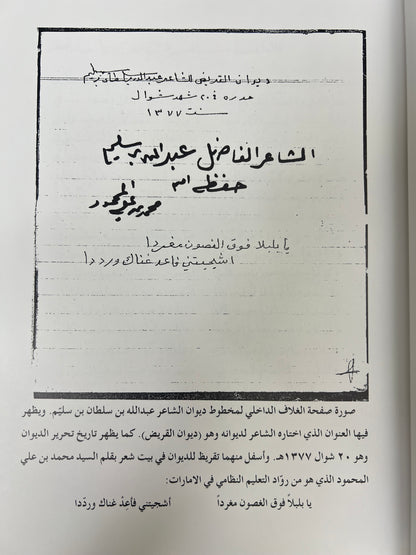 ديوان القريض للشاعر عبدالله بن سلطان بن سليم
حرره ٢٠ شهر شوال
سنت ١٣٧٧
الشاعر الفاضل عبدالله بن سليم
حفظه الله
محمد بن علي المحمود
يا بلبلا فوق الغصون مغردا
اشجيتني فاعد غناك ورددا
صورة صفحة الغلاف الداخلي لمخطوط ديوان الشاعر عبدالله بن سلطان بن سليّم. ويظهر
فيها العنوان الذي اختاره الشاعر لديوانه وهو (ديوان القريض). كما يظهر تاريخ تحرير الديوان
وهو ٢٠ شوال ١٣٧٧هـ. وأسفل منهما تقريظ للديوان في بيت شعر بقلم السيد محمد بن علي
المحمود الذي هو من روّاد التعليم النظامي في الامارات:
يا بلبلاً فوق الغصون مغرداً أشجيتني فأعِدْ غناك وردّدا